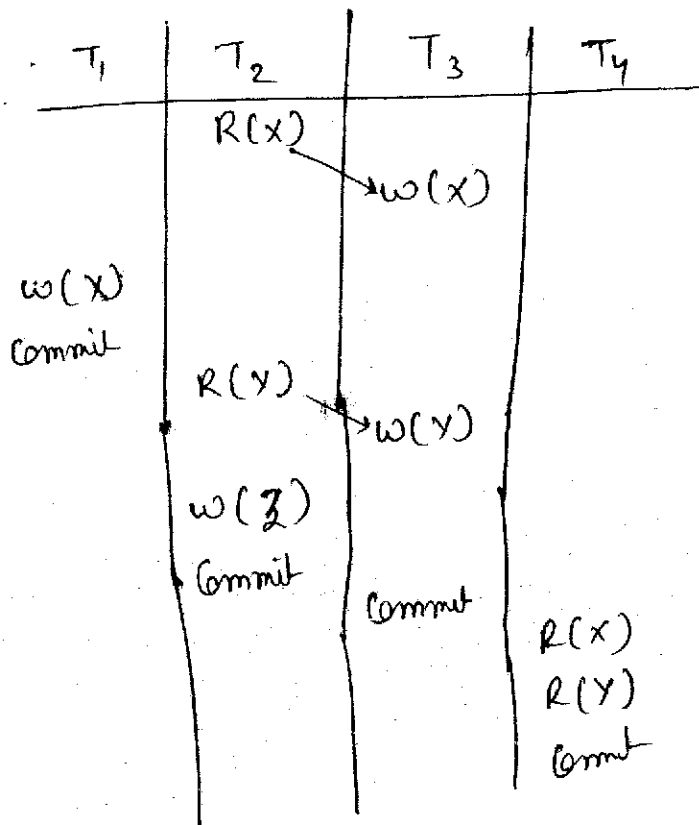 T1 T2 T3 T4
R(X)
W(X)
W(X)
Commit
R(Y)
W(Y)
W(Z)
Commit
Commit
R(X)
R(Y)
Commit